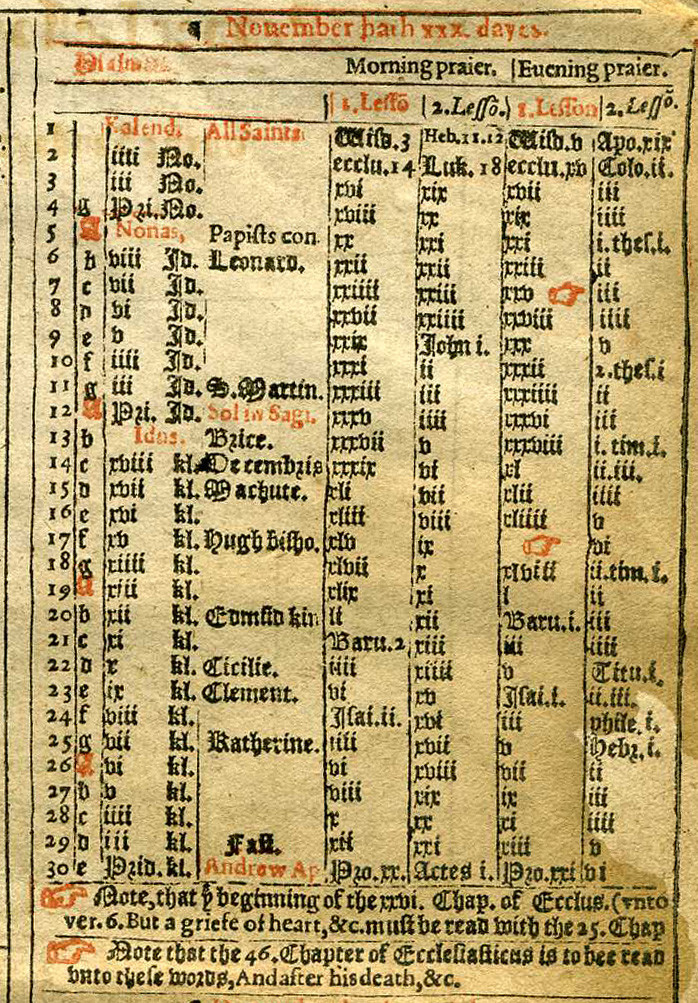 Nouember hath xxx. dayes.
Psalmes. Morning praier. Euening praier.
1. Lessō 2. Lessō. 1. Lesson 2. Lessō.
1 Kalend. All Saints Wisd. 3 Heb. 11. 12 Wisd. v Apo. xix
2 iiii No. ecclu. 14 Luk. 18 ecclu. xv Colo. ii.
3 iii No. xvi xix xvii iii
4 g Pri. No. xviii xx xix iiii
5 A Nonas, Papists con. xx xxi xxi i. thes. i.
6 b viii Id. Leonard. xxii xxii xxiii ii
7 c vii Id. xxiiii xxiii xxv ☞ iii
8 d vi Id. xxvii xxiiii xxviii iiii
9 e v Id. xxix John i. xxx v
10 f iiii Id. xxxi ii xxxii 2. thes. i
11 g iii Id. S. Martin. xxxiii iii xxxiiii ii
12 A Pri. Id. Sol in Sagi. xxxv iiii xxxvi iii
13 b Idus. Brice. xxxvii v xxxviii i. tim. i.
14 c xviii kl. Decembris xxxix vi xl ii. iii.
15 d xvii kl. Machute. xli vii xlii iiii
16 e xvi kl. xliii viii xliiii v
17 f xv kl. Hugh bisho. xlv ix ☞ vi
18 g xiiii kl. xlvii x xlviii ii. tim. i.
19 A xiii kl. xlix xi l ii
20 b xii kl. Edmūd kin li xii Baru. i. iii
21 c xi kl. Baru. 2 xiii iii iiii
22 d x kl. Cicilie. iiii xiiii v Titu. i.
23 e ix kl. Clement. vi xv Isai. i. ii. iii.
24 f viii kl. Isai. ii. xvi iii phile. i.
25 g vii kl. Katherine. iiii xvii v Hebr. i.
26 A vi kl. vi xviii vii ii
27 b v kl. viii xix ix iii
28 c iiii kl. x xx xi iiii
29 d iii kl. Fast. xii xxi xiii v
30 e Prid. kl. Andrew Ap Pro. xx. Actes i. Pro. xxi vi
☞ Note, that yͤ beginning of the xxvi. Chap. of Ecclus. (vnto
ver. 6. But a griefe of heart, &c. must be read with the 25. Chap
☞ Note that the 46. Chapter of Ecclesiasticus is to bee read
vnto these words, And after his death, &c.